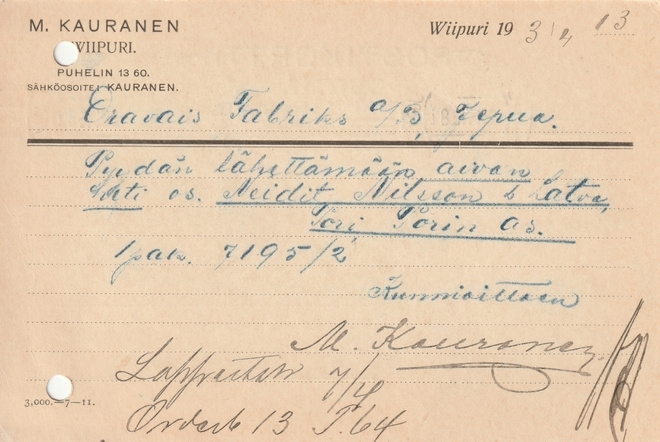 M. KAURANEN
WIIPURI.
PUHELIN 13 60.
SÄHKÖOSOITE: KAURANEN.
Wiipuri 19 3/4 13
Oravais Fabriks a/B, Jepua.
Pyydän lähettämään aivan
heti os. Neidit Nilsson & Latva,
Pori, Porin as.
1 pak. 7195/2
Kunnioittaen
M. Kauranen
7/4
13 64
3,000.—7—11.